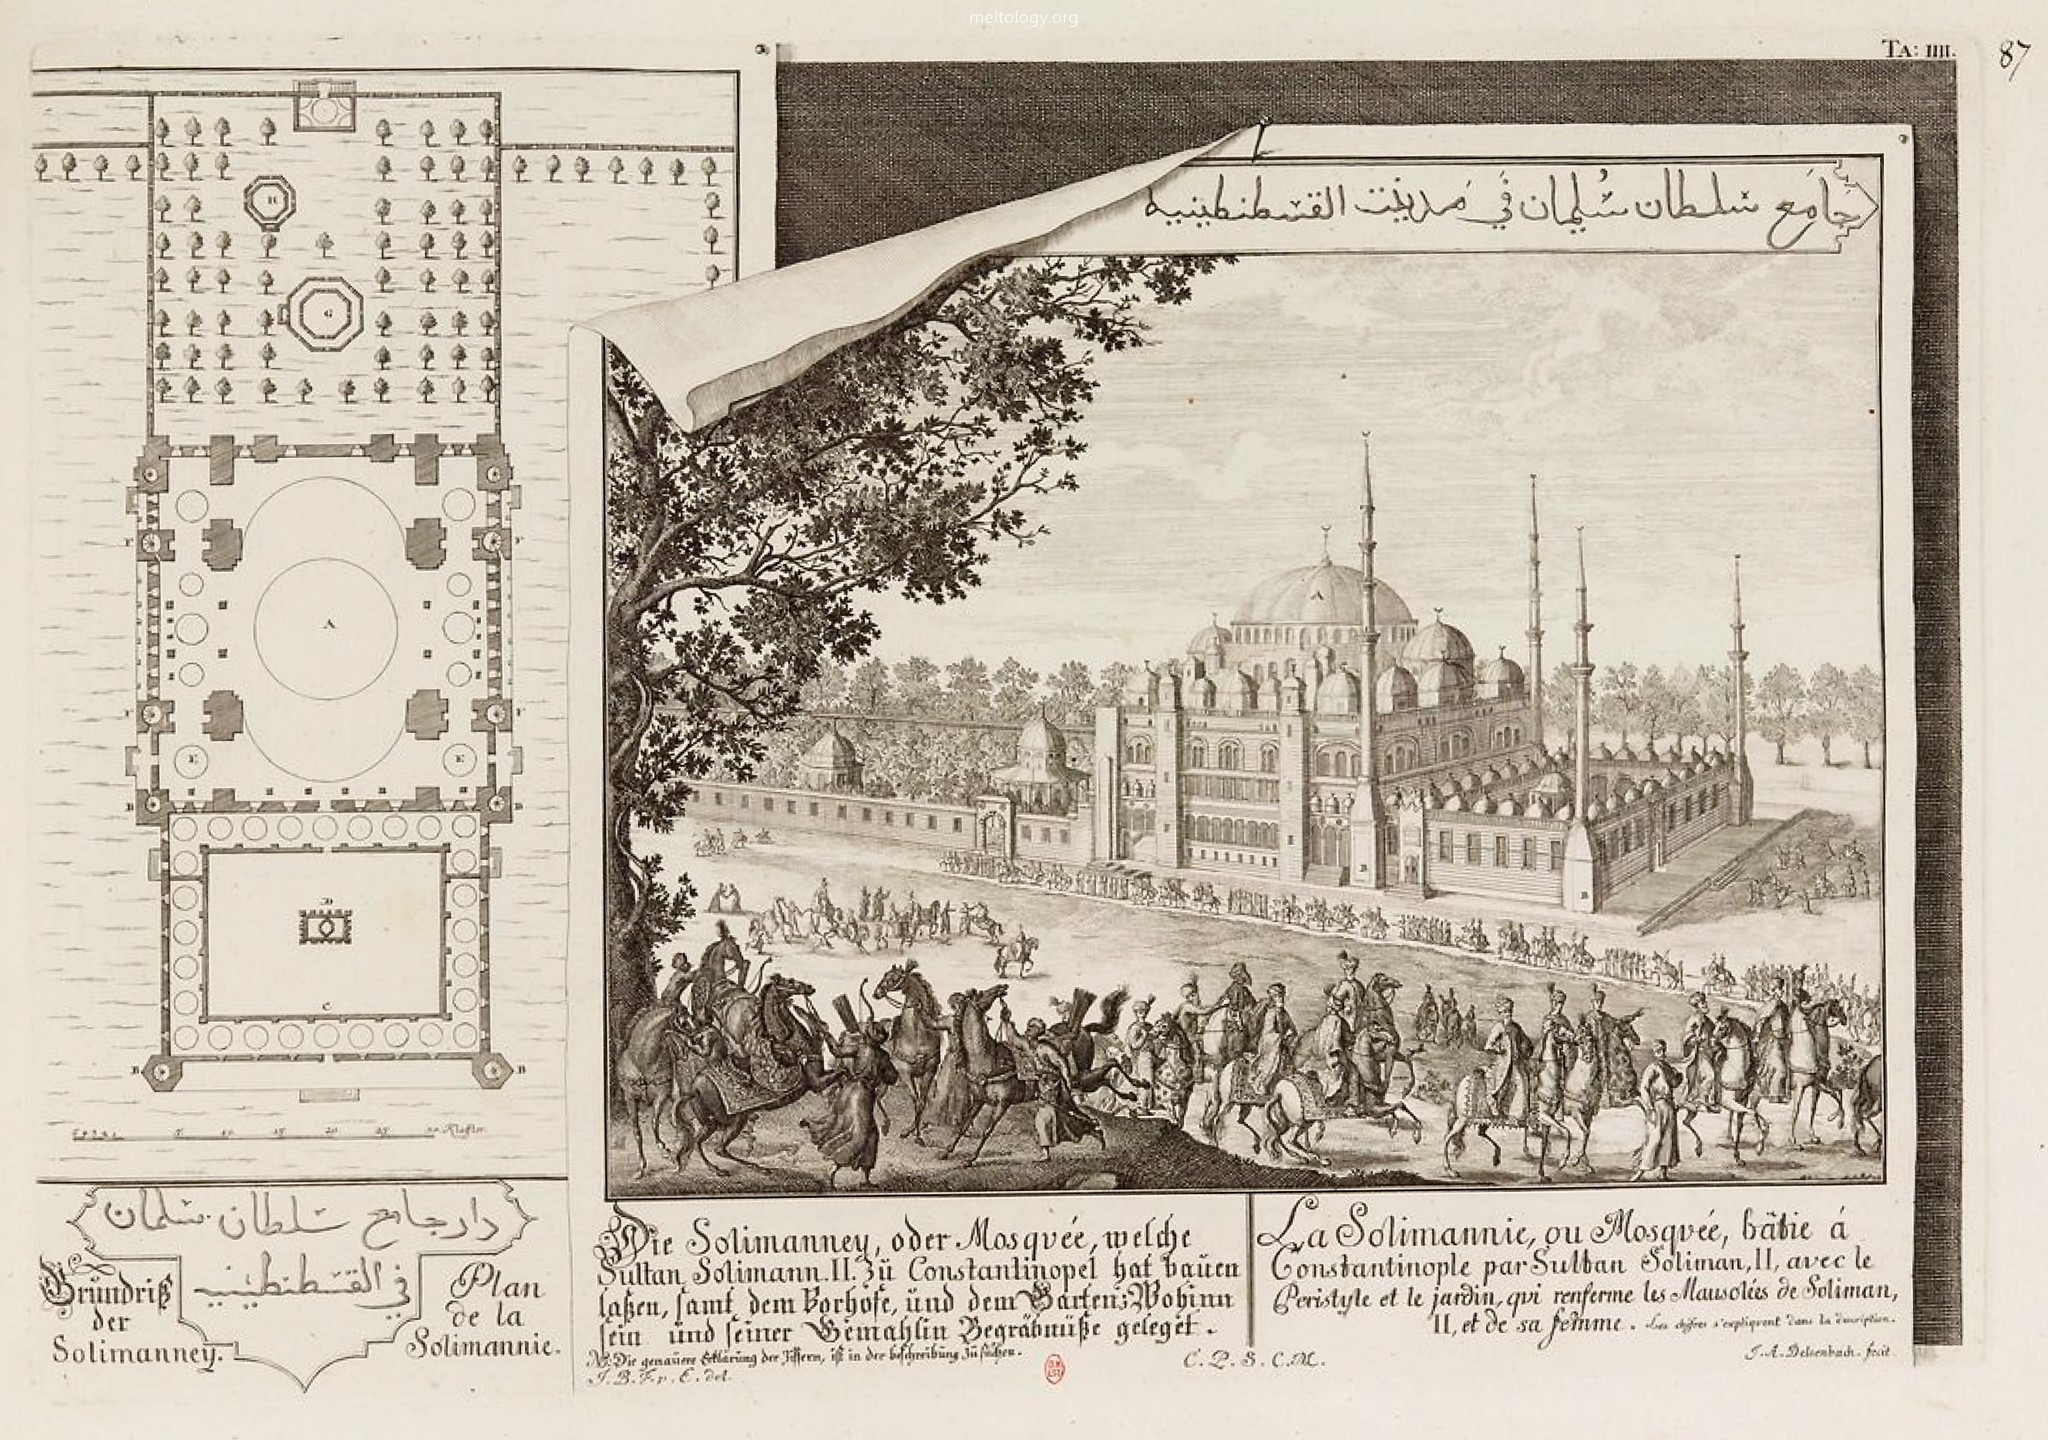 meltology.org
TA: IIII.
87
جامع سلطان سليمان في مدينت القسطنطينيه
H
G
A
F
F
F
F
E
E
B
B
D
C
B
B
5 4 3 2 1 5 10 15 20 25 30 Klafter.
A
B
B
دار جامع سلطان سليمان
في القسطنطينيه
Gründriß
der
Solimanney.
Plan
de la
Solimannie.
Die Solimanney, oder Mosqvée, welche
Sultan Solimann. II. zü Constantinopel hat baüen
laßen, samt dem Vorhofe, ünd dem Garten; Wohinn
sein ünd seiner Gemahlin Begräbnüße geleget.
NB. Die genaüere Erklärüng der Ziffern, ist in der beschreibüng zü süchen.
J. B. F. v. E. del.
La Solimannie, ou Mosqvée, bâtie á
Constantinople par Sultan Soliman, II, avec le
Peristyle et le jardin, qvi renferme les Mausolées de Soliman,
II, et de sa femme. Les chifres s'expliqvent dans la description.
C. P. S. C. M.
J. A. Delsenbach. fecit.